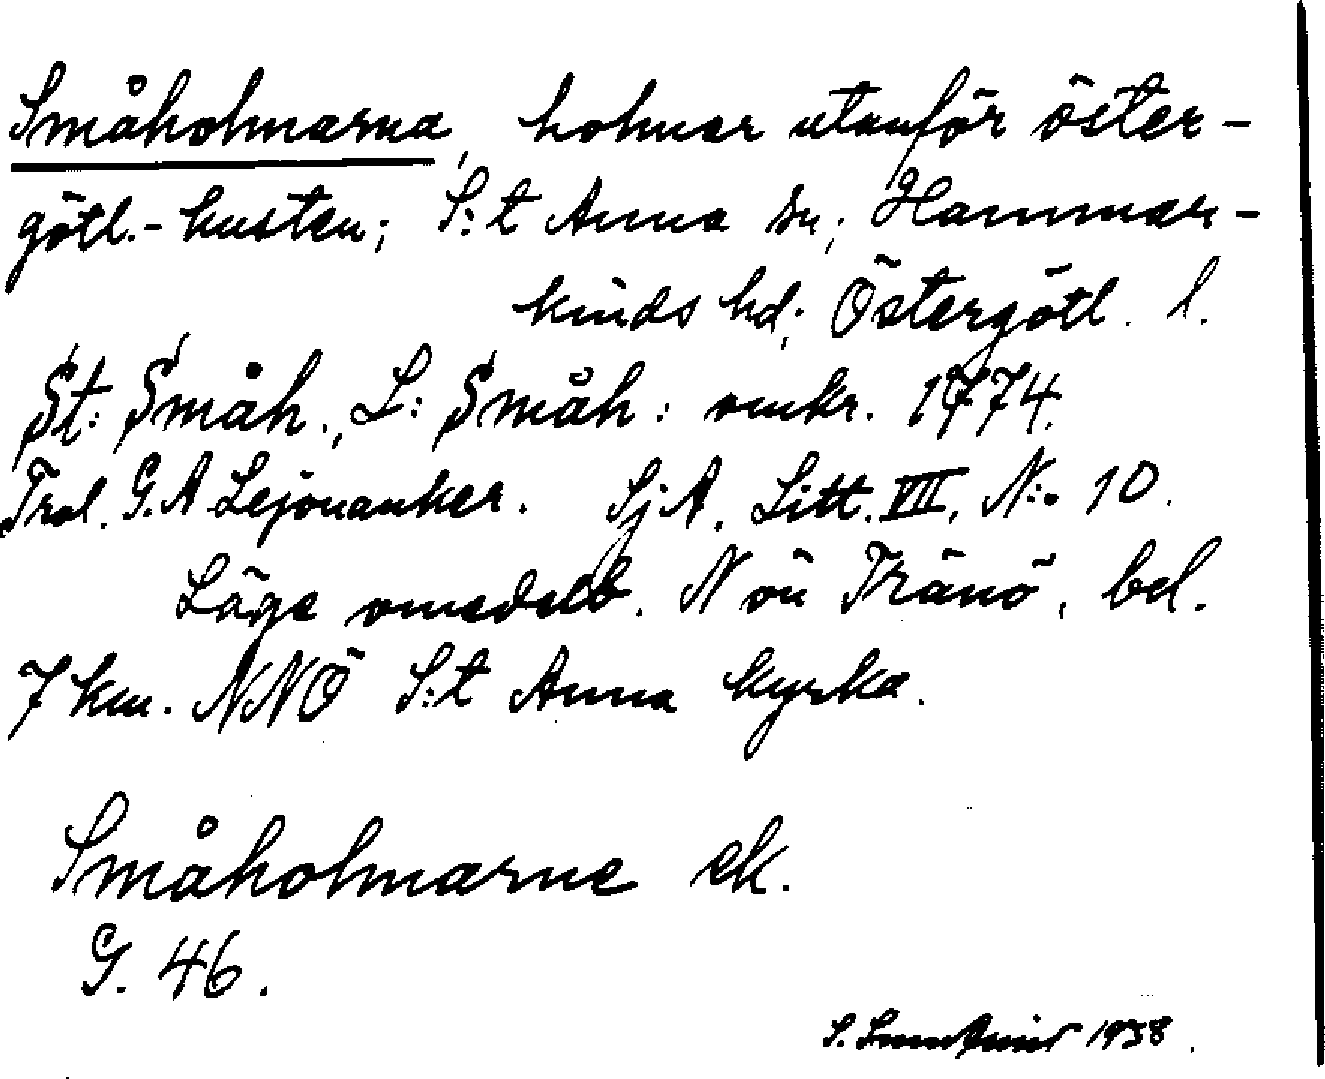 Småholmarna, holmar utanför öster-
götl.-kusten; S:t Anna sn; Hammar-
kinds hd; Östergötl. l.
St: Småh., L: Småh: omkr. 1774.
Trol. G. A Lejonanker. SjA. Litt. VII, N:o 10.
Läge omedelb. N ön Tränö, bel.
7 km. NNÖ S:t Anna kyrka.
Småholmarne ek.
G. 46.
S. 1938.